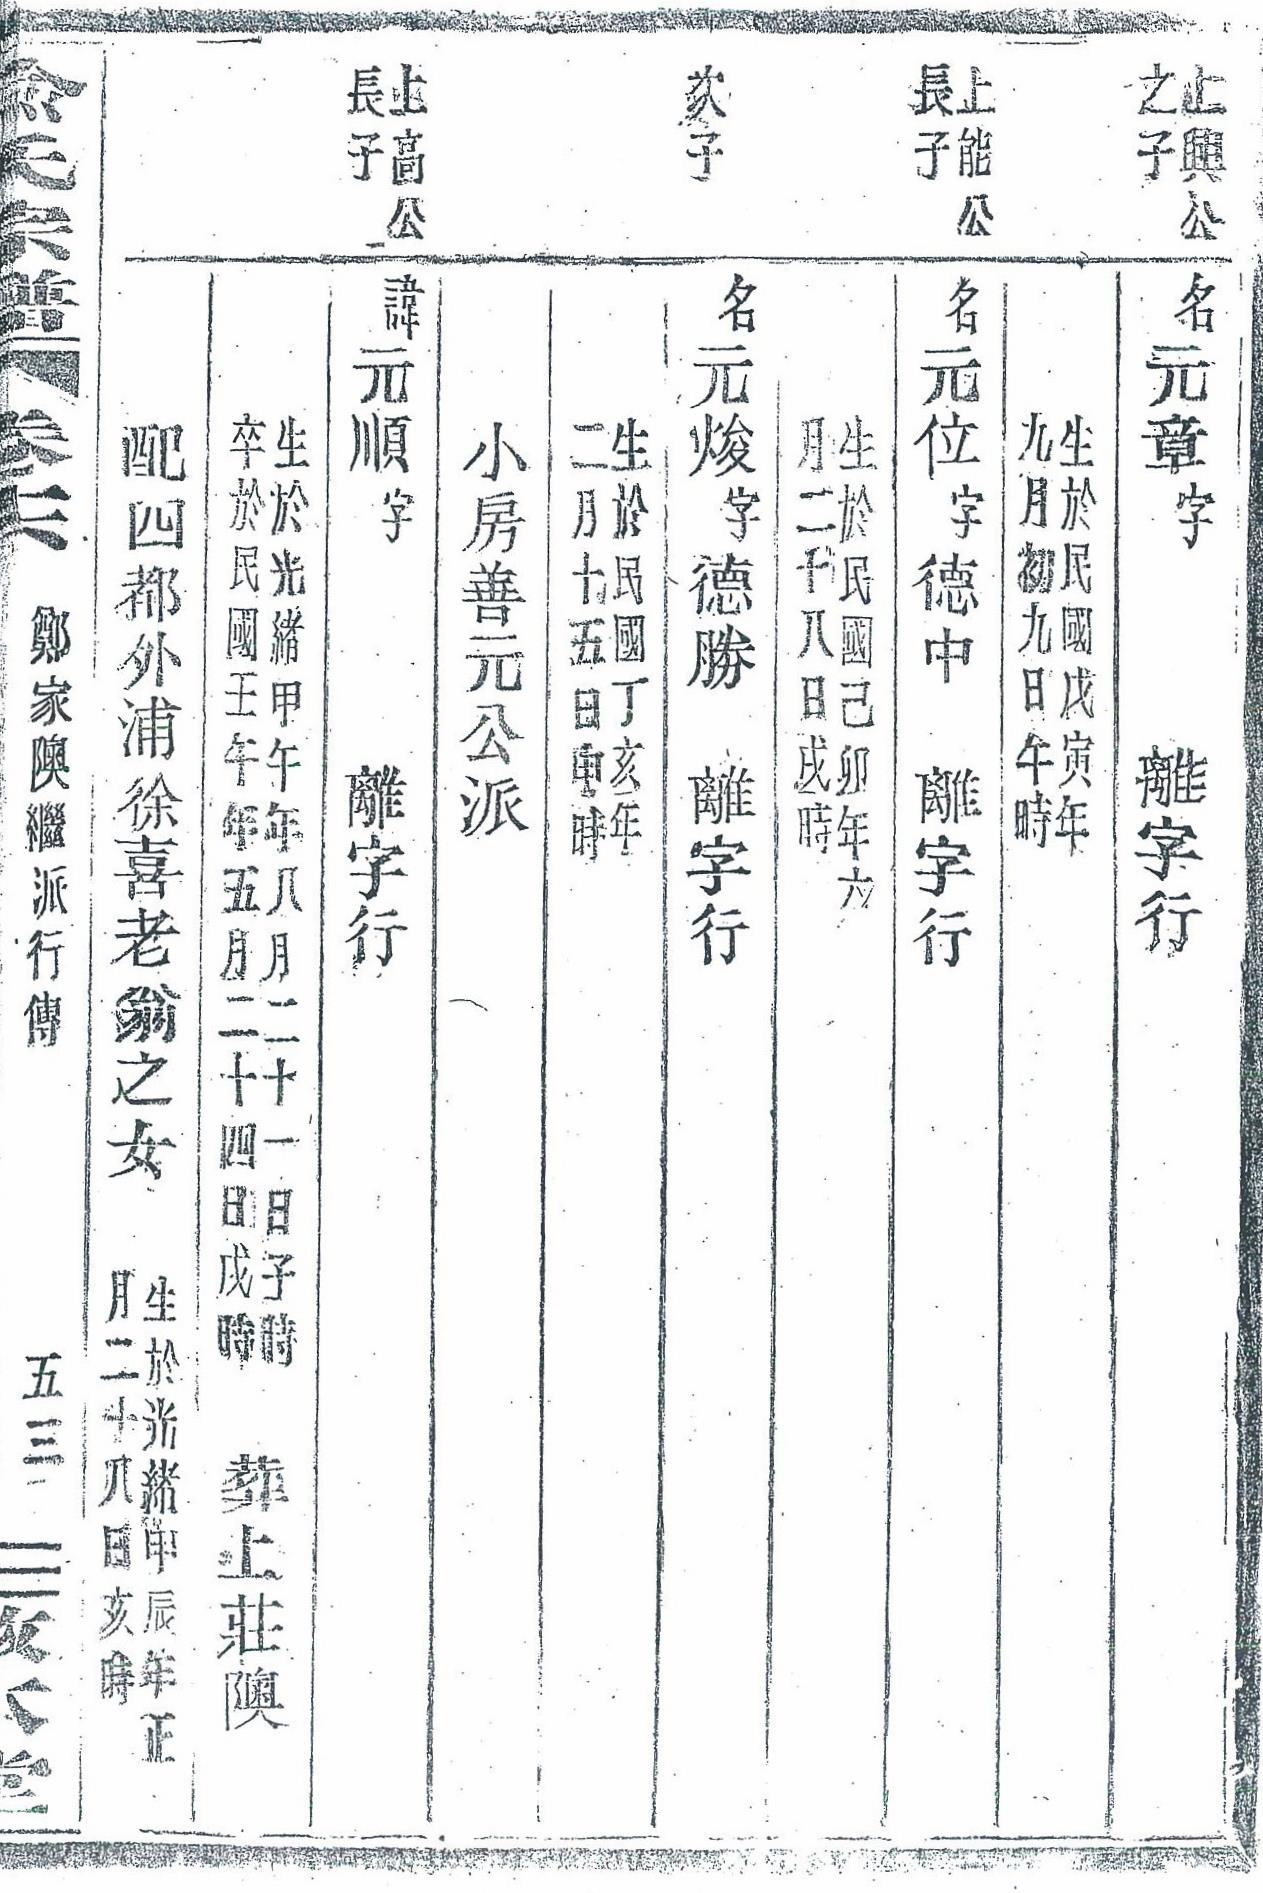 上興公
之子
名元章字 離字行
生於民國戊寅年
九月初九日午時
上能公
長子
名元位字德中 離字行
生於民國己卯年六
月二十八日戌時
次子
名元焌字德勝 離字行
生於民國丁亥年
二月十五日申時
小房善元公派
上高公
長子
諱元順字 離字行
生於光緒甲午年八月二十一日子時
卒於民國壬午年五月二十四日戌時
葬上莊隩
配四都外浦徐喜老翁之女
生於光緒甲辰年正
月二十八日亥時
氏宗譜 卷六 鄭家隩繼派行傳 五三